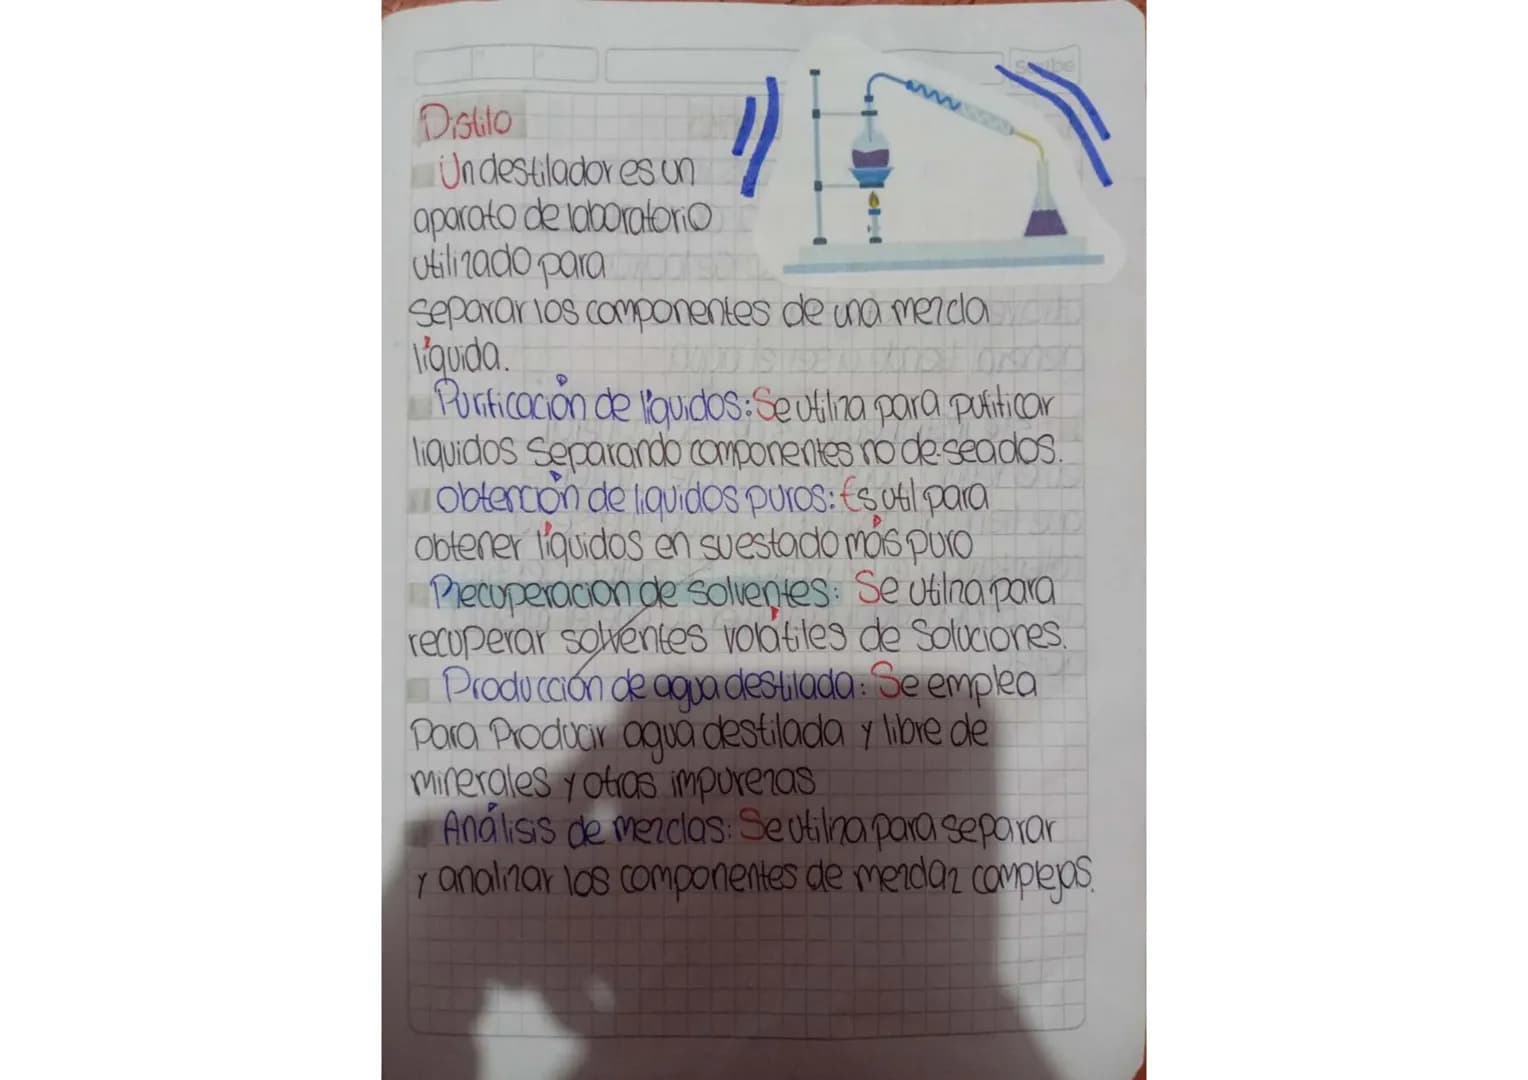 Scribe
Distilo
Un destilador es un
aparato de laboratorio
utilizado para
separar los componentes de una mezcla
líquida.
Purificación de líquidos: Se utiliza para putiticar
liquidos separando componentes no de-seados.
Obtención de liquidos puros: Es util para
obtener líquidos en su estado más puro
Recuperacion de solventes: Se utiliza para
recuperar solventes volátiles de soluciones.
Producción de agua destilada: Se emplea
Para Producir agua destilada y libre de
minerales y otras impurezas
Análisis de mezclas: Se utiliza para separar
y analizar los componentes de mezclaz complejas.